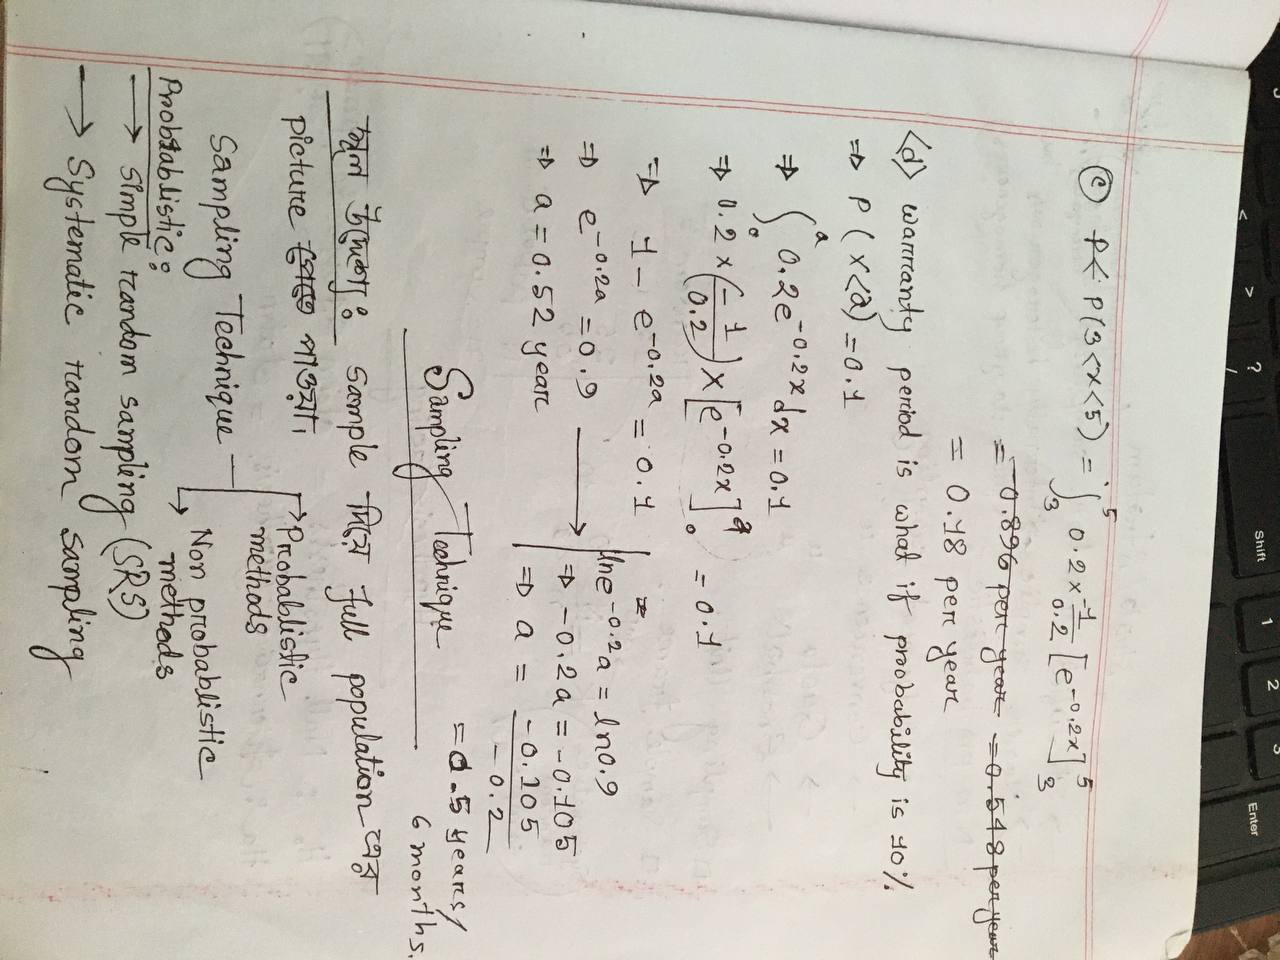 Shift 1 2 3
< > ? / Enter
(c) P< P(3<x<5) = ∫₃⁵ 0.2 × -1/0.2 [e^-0.2x]₃⁵
= 0.896 per year = 0.548 per year
= 0.18 per year
<d> warranty period is what if probability is 10%.
⇒ P (x<a) = 0.1
⇒ ∫₀ᵃ 0.2e^-0.2x dx = 0.1
⇒ 0.2 × (-1/0.2) × [e^-0.2x]₀ᵃ = 0.1
⇒ 1 - e^-0.2a = 0.1
⇒ e^-0.2a = 0.9 →
⇒ a = 0.52 year
=
lne^-0.2 a = ln0.9
⇒ -0.2a = -0.105
⇒ a = -0.105/-0.2
= 0.5 years/
6 months.
Sampling Technique
মূল উদ্দেশ্য: sample দিয়ে full population এর
picture পেতে পাওয়া।
Sampling Technique
→ Probablistic
methods
→ Non probablistic
methods
Probtablistic:
→ Simple random sampling (SRS)
→ Systematic random sampling